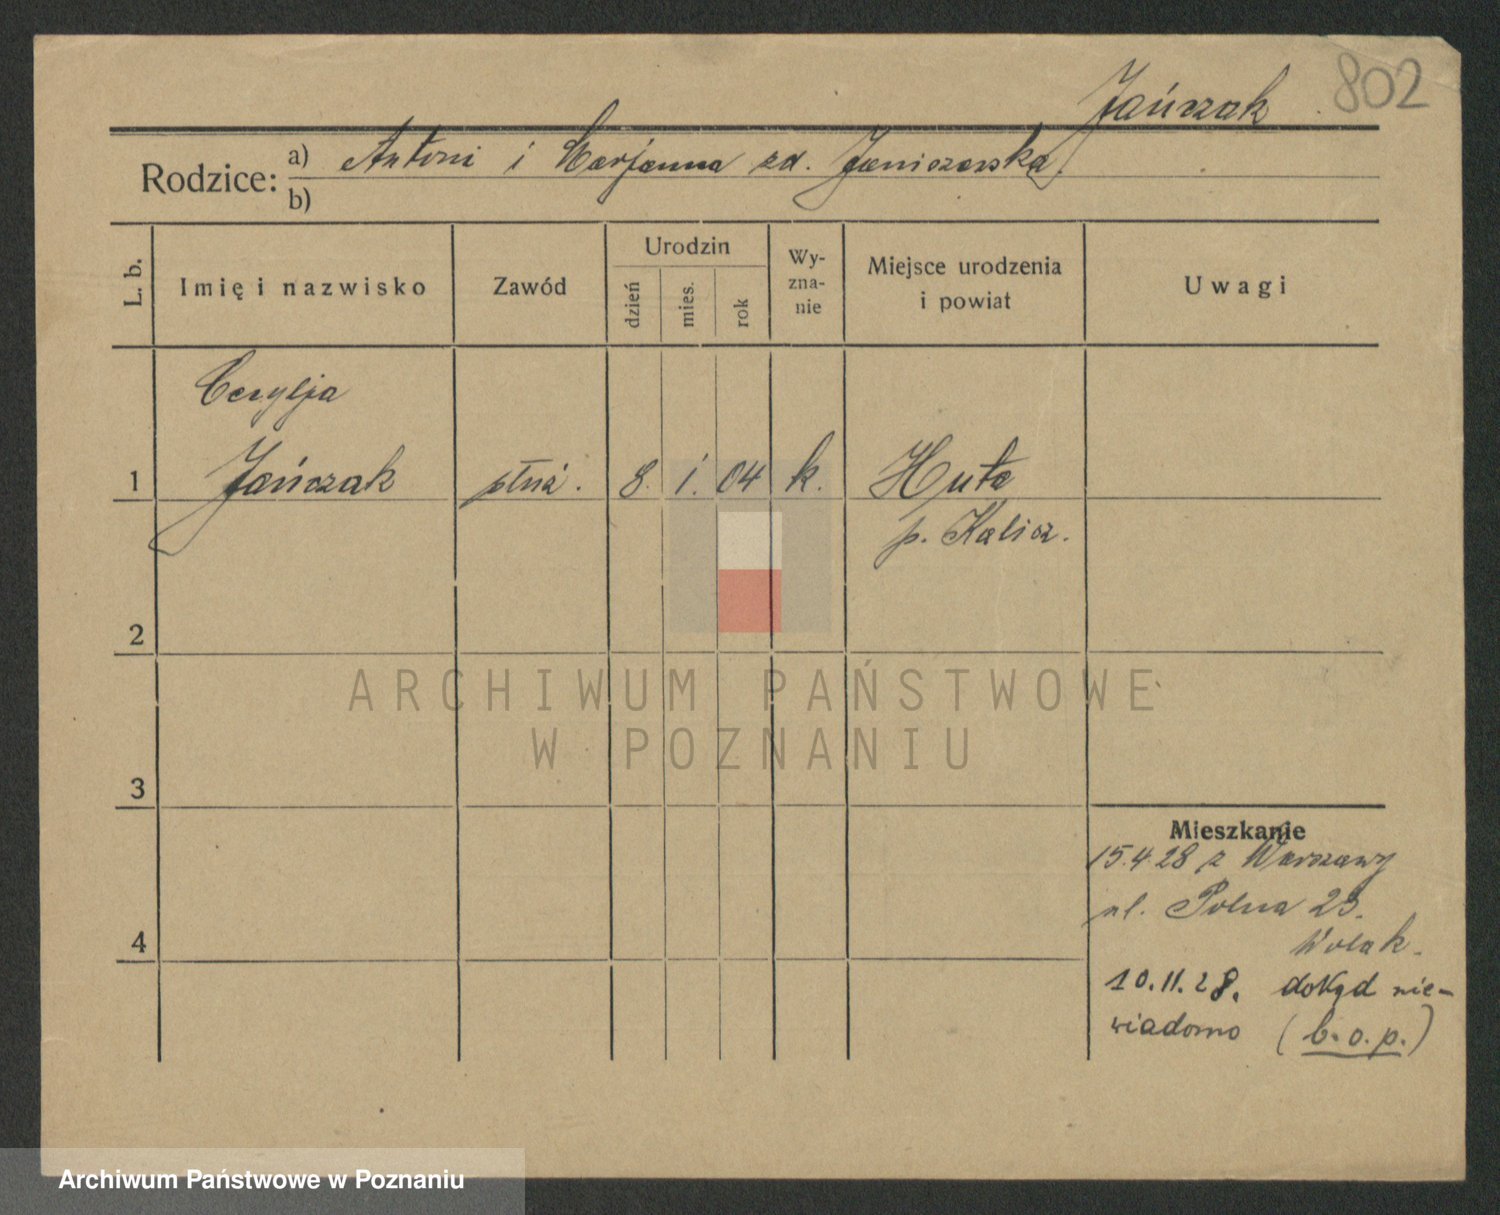 802
Jańczak
Rodzice: a) Antoni i Marjanna zd. Janiszewska
b)
L. b.
Imię i nazwisko
Zawód
Urodzin
dzień
mies.
rok
Wy-
zna-
nie
Miejsce urodzenia
i powiat
Uwagi
Cecylja
1 Jańczak służ. 8. 1. 04 k. Huta
p. Kalisz.
2
3
4
Mieszkanie
15.4.28 z Warszawy
ul. Polna 23.
Wolak.
10.11.28. dokąd nie-
wiadomo (b.o.p.)
ARCHIWUM PAŃSTWOWE
W POZNANIU
Archiwum Państwowe w Poznaniu